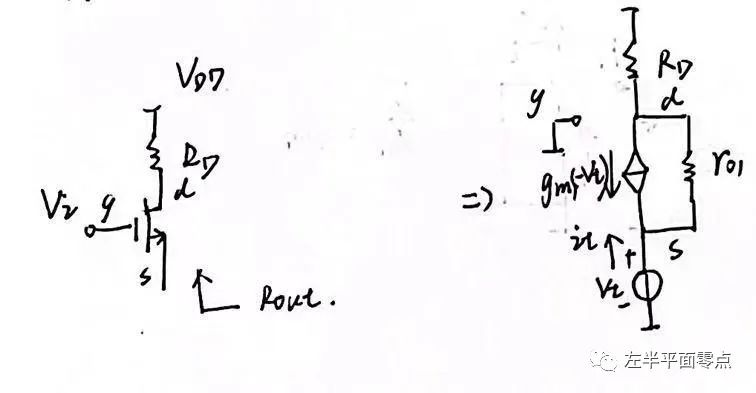 VDD
RD
d
Vi
g
s
Rout.
=>
RD
d
g
gm(-Vt)
ro1
it
+
s
Vt
-
左半平面零点